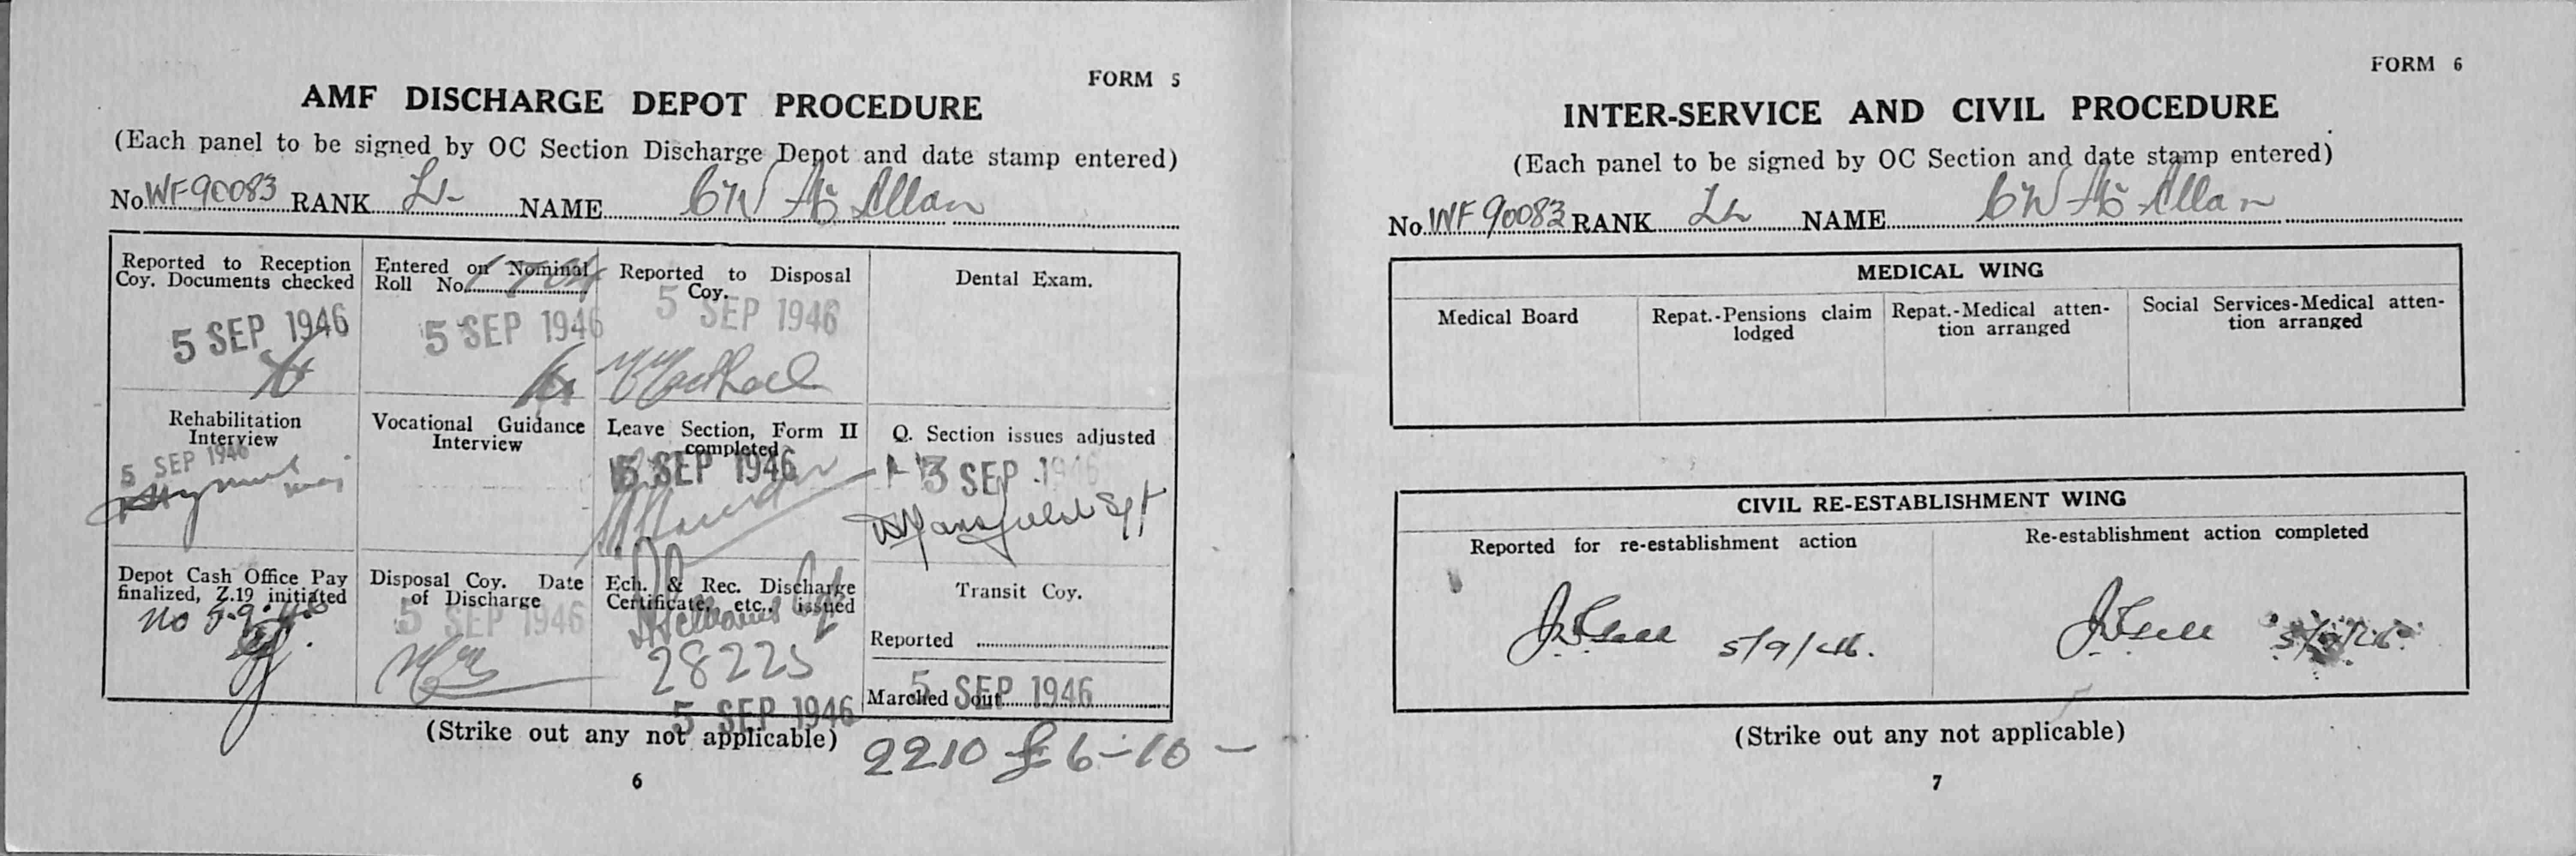 FORM 5
AMF DISCHARGE DEPOT PROCEDURE
(Each panel to be signed by OC Section Discharge Depot and date stamp entered)
No. WF90083 RANK Lt NAME CW McAllan
Reported to Reception
Coy. Documents checked
5 SEP 1946
Entered on Nominal
Roll No.
5 SEP 1946
Reported to Disposal
Coy.
5 SEP 1946
Dental Exam.
Rehabilitation
Interview
5 SEP 1946
Vocational Guidance
Interview
Leave Section, Form II
completed
5 SEP 1946
Q. Section issues adjusted
SEP 1946
Mansfield Sgt
Depot Cash Office Pay
finalized, Z.19 initiated
No 5.9.46
Disposal Coy. Date
of Discharge
5 SEP 1946
Ech. & Rec. Discharge
Certificate, etc., issued
28225
5 SEP 1946
Transit Coy.
Reported
Marched out
5 SEP 1946
(Strike out any not applicable)
2210 £6-10-
6
FORM 6
INTER-SERVICE AND CIVIL PROCEDURE
(Each panel to be signed by OC Section and date stamp entered)
No. WF90083 RANK Lt NAME CW McAllan
MEDICAL WING
Medical Board
Repat.-Pensions claim
lodged
Repat.-Medical atten-
tion arranged
Social Services-Medical atten-
tion arranged
CIVIL RE-ESTABLISHMENT WING
Reported for re-establishment action
5/9/46.
Re-establishment action completed
5/9/46
(Strike out any not applicable)
7